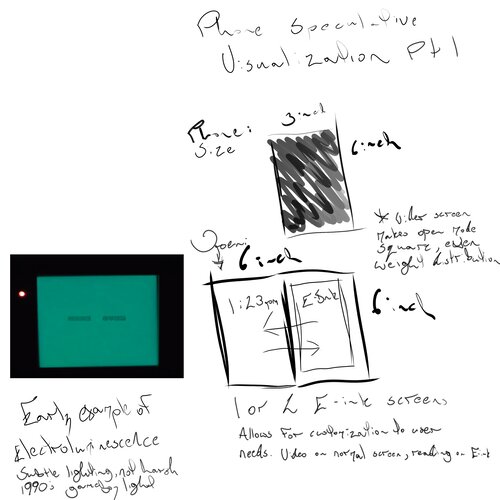 Phone Speculative
Visualization Pt 1
3 inch
Phone:
Size
6 inch
Open:
6 inch
* Wider screen
makes open mode
square, even
weight distribution
1:23pm
E-Ink
6 inch
1 or 2 E-ink screens
Allows for customization to user
needs. Video on normal screen, reading on E-ink
Early example of
Electroluminescence
Subtle lighting, not harsh
1990's gameboy light